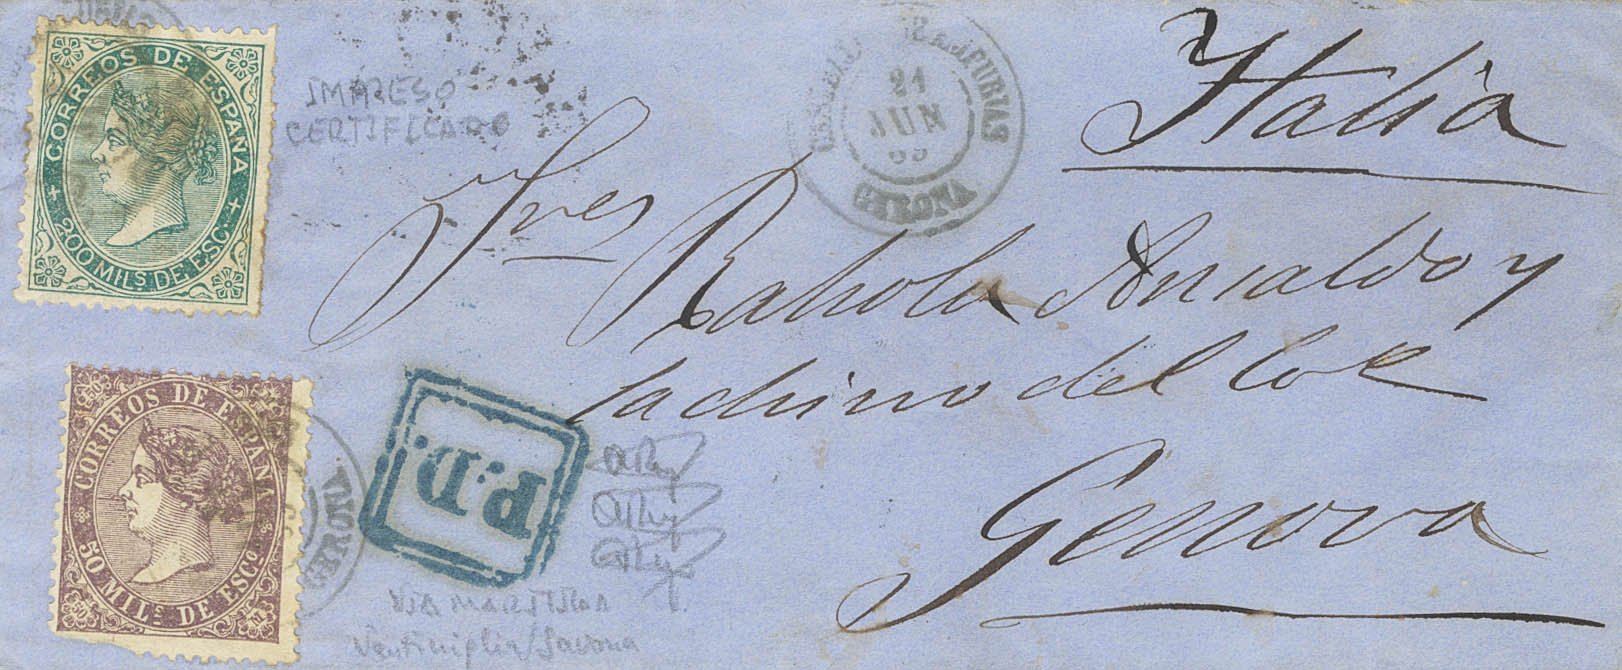 CORREOS DE ESPANA
200 MILS. DE ESCO.
IMPRESO
CERTIFICADO
21
JUN
69
GERONA
Italia
Sres Rahola Ansaldo y
del
Genova
P.D.
CORREOS DE ESPANA
50 MILS. DE ESCO.
GERONA
VIA MARITIMA
Ventimiglia/Savona